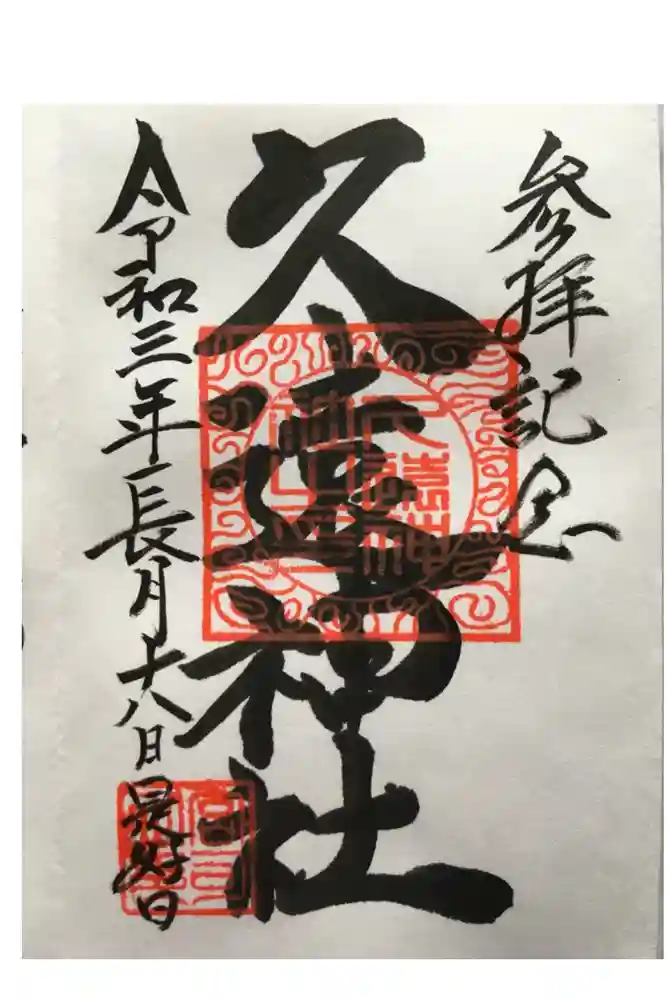 参拝記念
久 神社
令和三年長月十八日
是好日